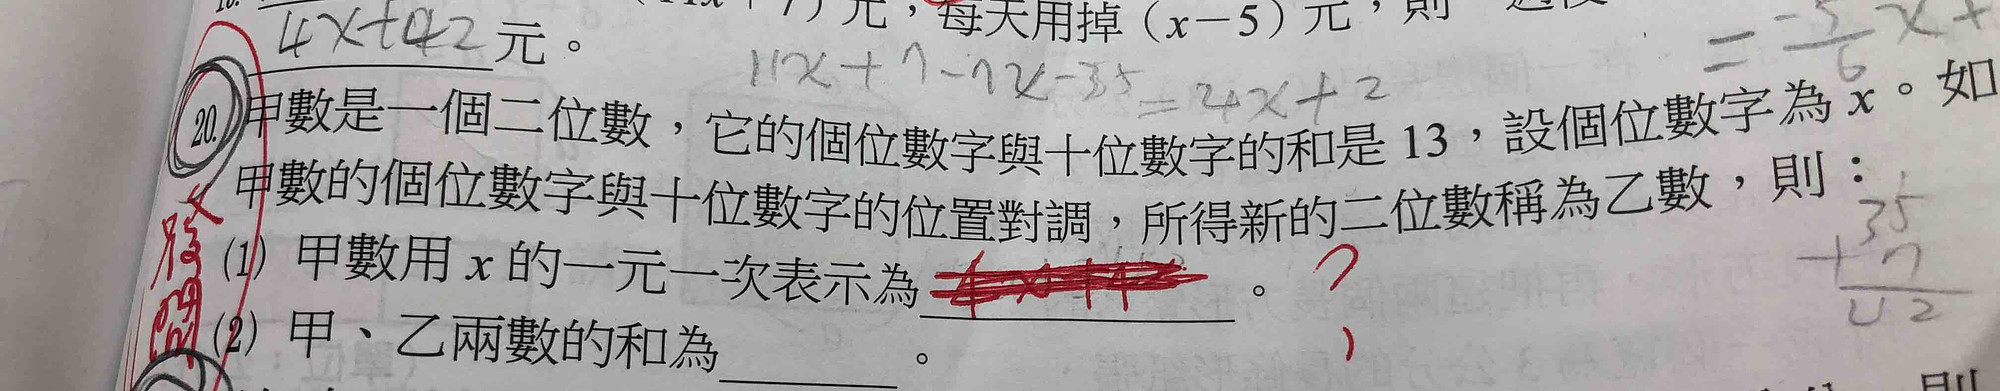 元,每天用掉(x-5)元,則
4x+42元。
11x+7-7x-35=4x+2
甲數是一個二位數,它的個位數字與十位數字的和是 13,設個位數字為 x。如
20.
甲數的個位數字與十位數字的位置對調,所得新的二位數稱為乙數,則:
35
+7
42
(1) 甲數用 x 的一元一次表示為。?
(2) 甲、乙兩數的和為。